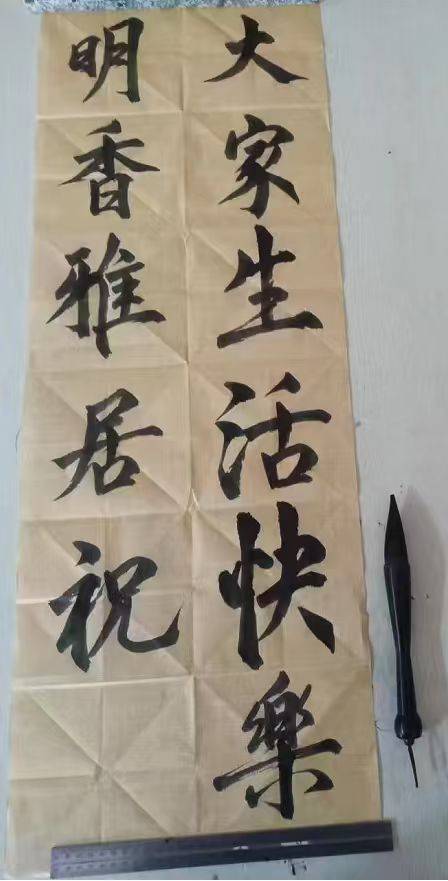 大家生活快樂
明香雅居祝